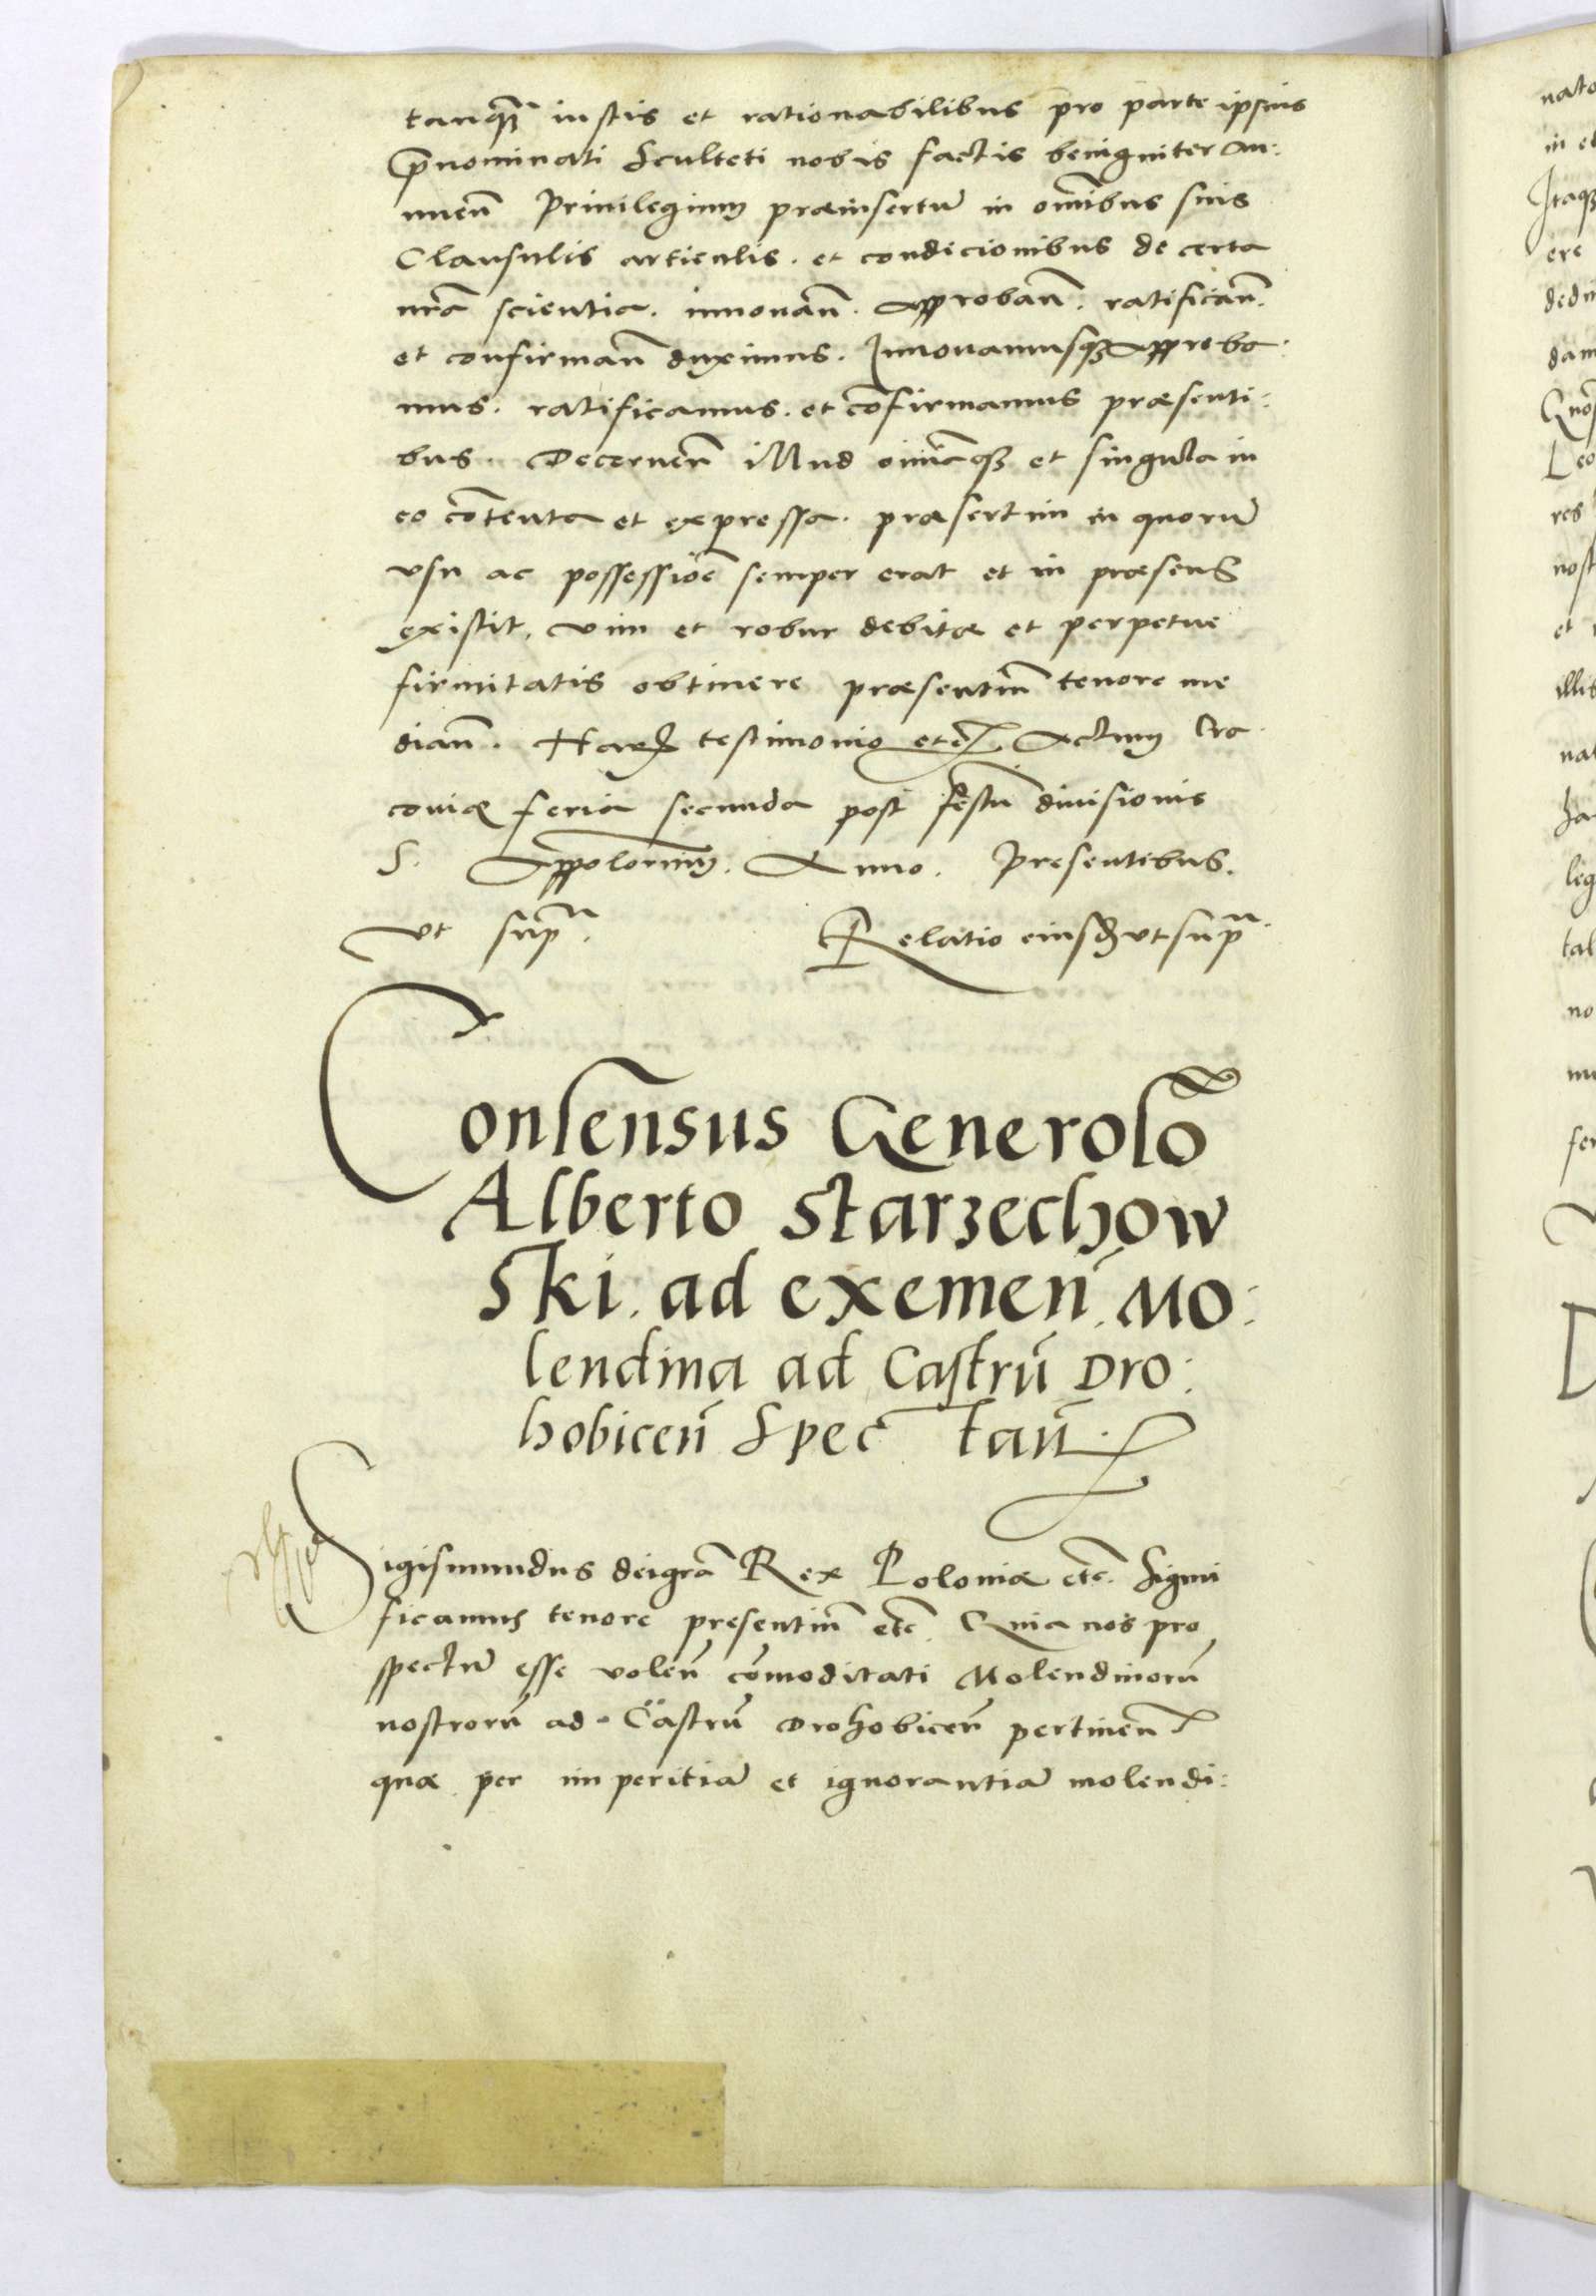 tanq̃ iustis et rationabilibus pro parte ipsius
p̃nominati Sculteti nobis factis benigniter an:
nuen̄ Privilegium præinsertū in om̄ibus suis
Clausulis articulis. et condicionibus de certa
nr̃a scientia. innovan̄. approban̄. ratifican̄.
et confirman̄ duximus. Innovamusqꝫ approba:
mus. ratificamus. et cōfirmamus præsenti:
bus. Decernen̄ illud om̄iaqꝫ et singula in
eo cōtenta et expressa. præsertim in quorū
usu ac possessiōe semper erat et in præsens
existit, vim et robur debitæ et perpetue
firmitatis obtinere præsentiū tenore me
dian̄. Harꝝ testimonio etc̃ Actum Cra
coviæ feria secunda post festū divisionis
S. Appolorum. Anno. Presentibus.
Ut supᵃ. Relatio eiusdꝫ ut supᵃ.
Consensus Generoso
Alberto Starzechow
ski. ad exemen̄. Mo:
lendina ad Castrū Dro:
hobicen̄ Spec tan̄.
Sigismundus dei gr̃a Rex Poloniæ etc̃. Signi
ficamus tenore presentiū etc̃. Quia nos pro
spectū esse volen̄ cōmoditati Molendinorū
nostrorū ad Castrū Drohobicen̄ pertinen̄
quæ per imperitiā et ignorantiā molendi: